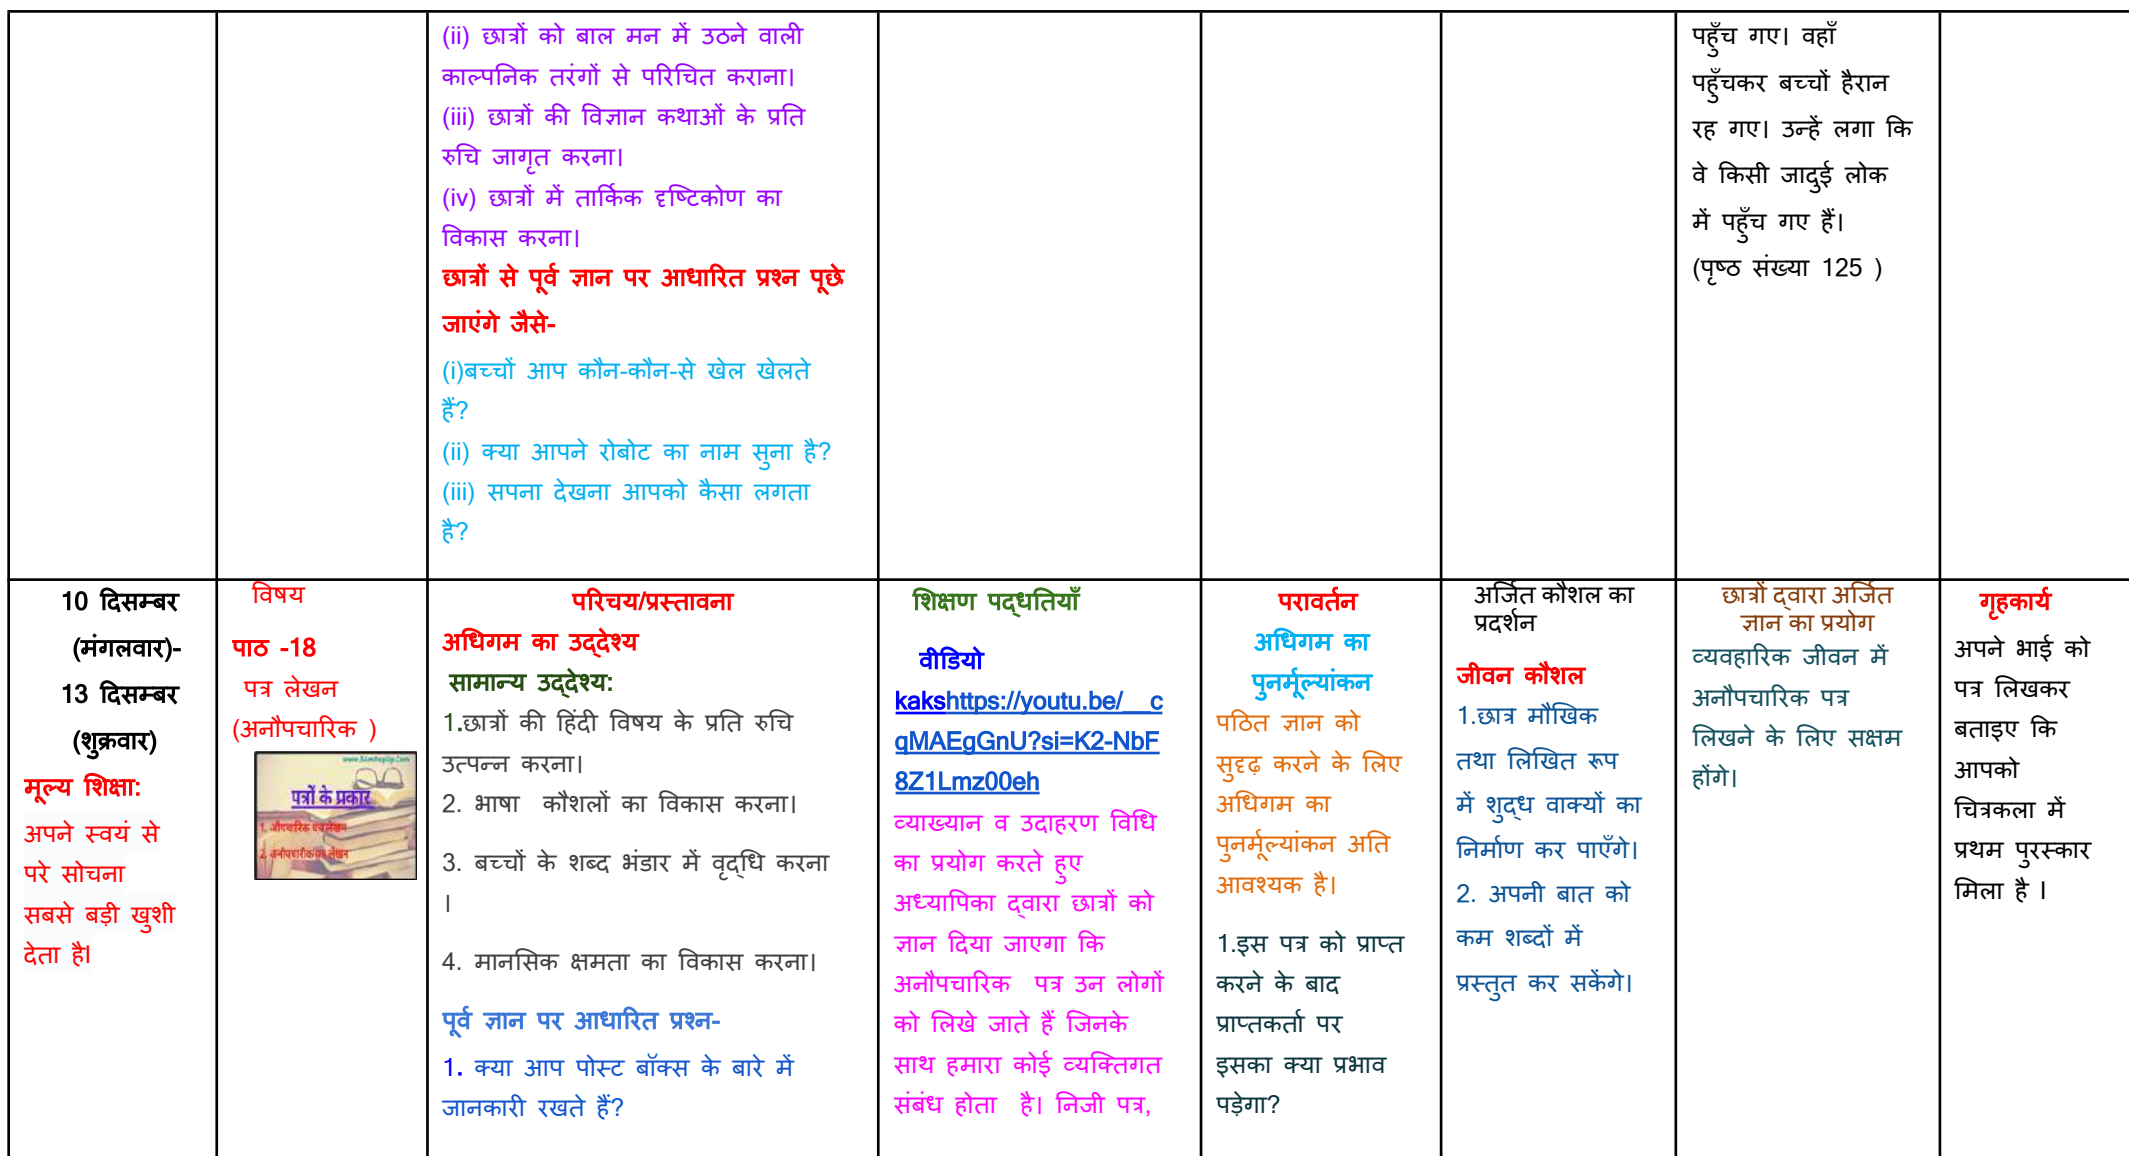 (ii) छात्रों को बाल मन में उठने वाली
काल्पनिक तरंगों से परिचित कराना।
(iii) छात्रों की विज्ञान कथाओं के प्रति
रुचि जागृत करना।
(iv) छात्रों में तार्किक दृष्टिकोण का
विकास करना।
छात्रों से पूर्व ज्ञान पर आधारित प्रश्न पूछे
जाएंगे जैसे-
(i)बच्चों आप कौन-कौन-से खेल खेलते
हैं?
(ii) क्या आपने रोबोट का नाम सुना है?
(iii) सपना देखना आपको कैसा लगता
है?
पहुँच गए। वहाँ
पहुँचकर बच्चों हैरान
रह गए। उन्हें लगा कि
वे किसी जादुई लोक
में पहुँच गए हैं।
(पृष्ठ संख्या 125 )
10 दिसम्बर
(मंगलवार)-
13 दिसम्बर
(शुक्रवार)
मूल्य शिक्षा:
अपने स्वयं से
परे सोचना
सबसे बड़ी खुशी
देता है।
विषय
पाठ -18
पत्र लेखन
(अनौपचारिक )
पत्रों के प्रकार
1. औपचारिक पत्र लेखन
2. अनौपचारीक पत्र लेखन
परिचय/प्रस्तावना
अधिगम का उद्देश्य
सामान्य उद्देश्य:
1.छात्रों की हिंदी विषय के प्रति रुचि
उत्पन्न करना।
2. भाषा कौशलों का विकास करना।
3. बच्चों के शब्द भंडार में वृद्धि करना
।
4. मानसिक क्षमता का विकास करना।
पूर्व ज्ञान पर आधारित प्रश्न-
1. क्या आप पोस्ट बॉक्स के बारे में
जानकारी रखते हैं?
शिक्षण पद्धतियाँ
वीडियो
kakshttps://youtu.be/__c
qMAEgGnU?si=K2-NbF
8Z1Lmz00eh
व्याख्यान व उदाहरण विधि
का प्रयोग करते हुए
अध्यापिका द्वारा छात्रों को
ज्ञान दिया जाएगा कि
अनौपचारिक पत्र उन लोगों
को लिखे जाते हैं जिनके
साथ हमारा कोई व्यक्तिगत
संबंध होता है। निजी पत्र,
परावर्तन
अधिगम का
पुनर्मूल्यांकन
पठित ज्ञान को
सुदृढ़ करने के लिए
अधिगम का
पुनर्मूल्यांकन अति
आवश्यक है।
1.इस पत्र को प्राप्त
करने के बाद
प्राप्तकर्ता पर
इसका क्या प्रभाव
पड़ेगा?
अर्जित कौशल का
प्रदर्शन
जीवन कौशल
1.छात्र मौखिक
तथा लिखित रूप
में शुद्ध वाक्यों का
निर्माण कर पाएँगे।
2. अपनी बात को
कम शब्दों में
प्रस्तुत कर सकेंगे।
छात्रों द्वारा अर्जित
ज्ञान का प्रयोग
व्यवहारिक जीवन में
अनौपचारिक पत्र
लिखने के लिए सक्षम
होंगे।
गृहकार्य
अपने भाई को
पत्र लिखकर
बताइए कि
आपको
चित्रकला में
प्रथम पुरस्कार
मिला है ।